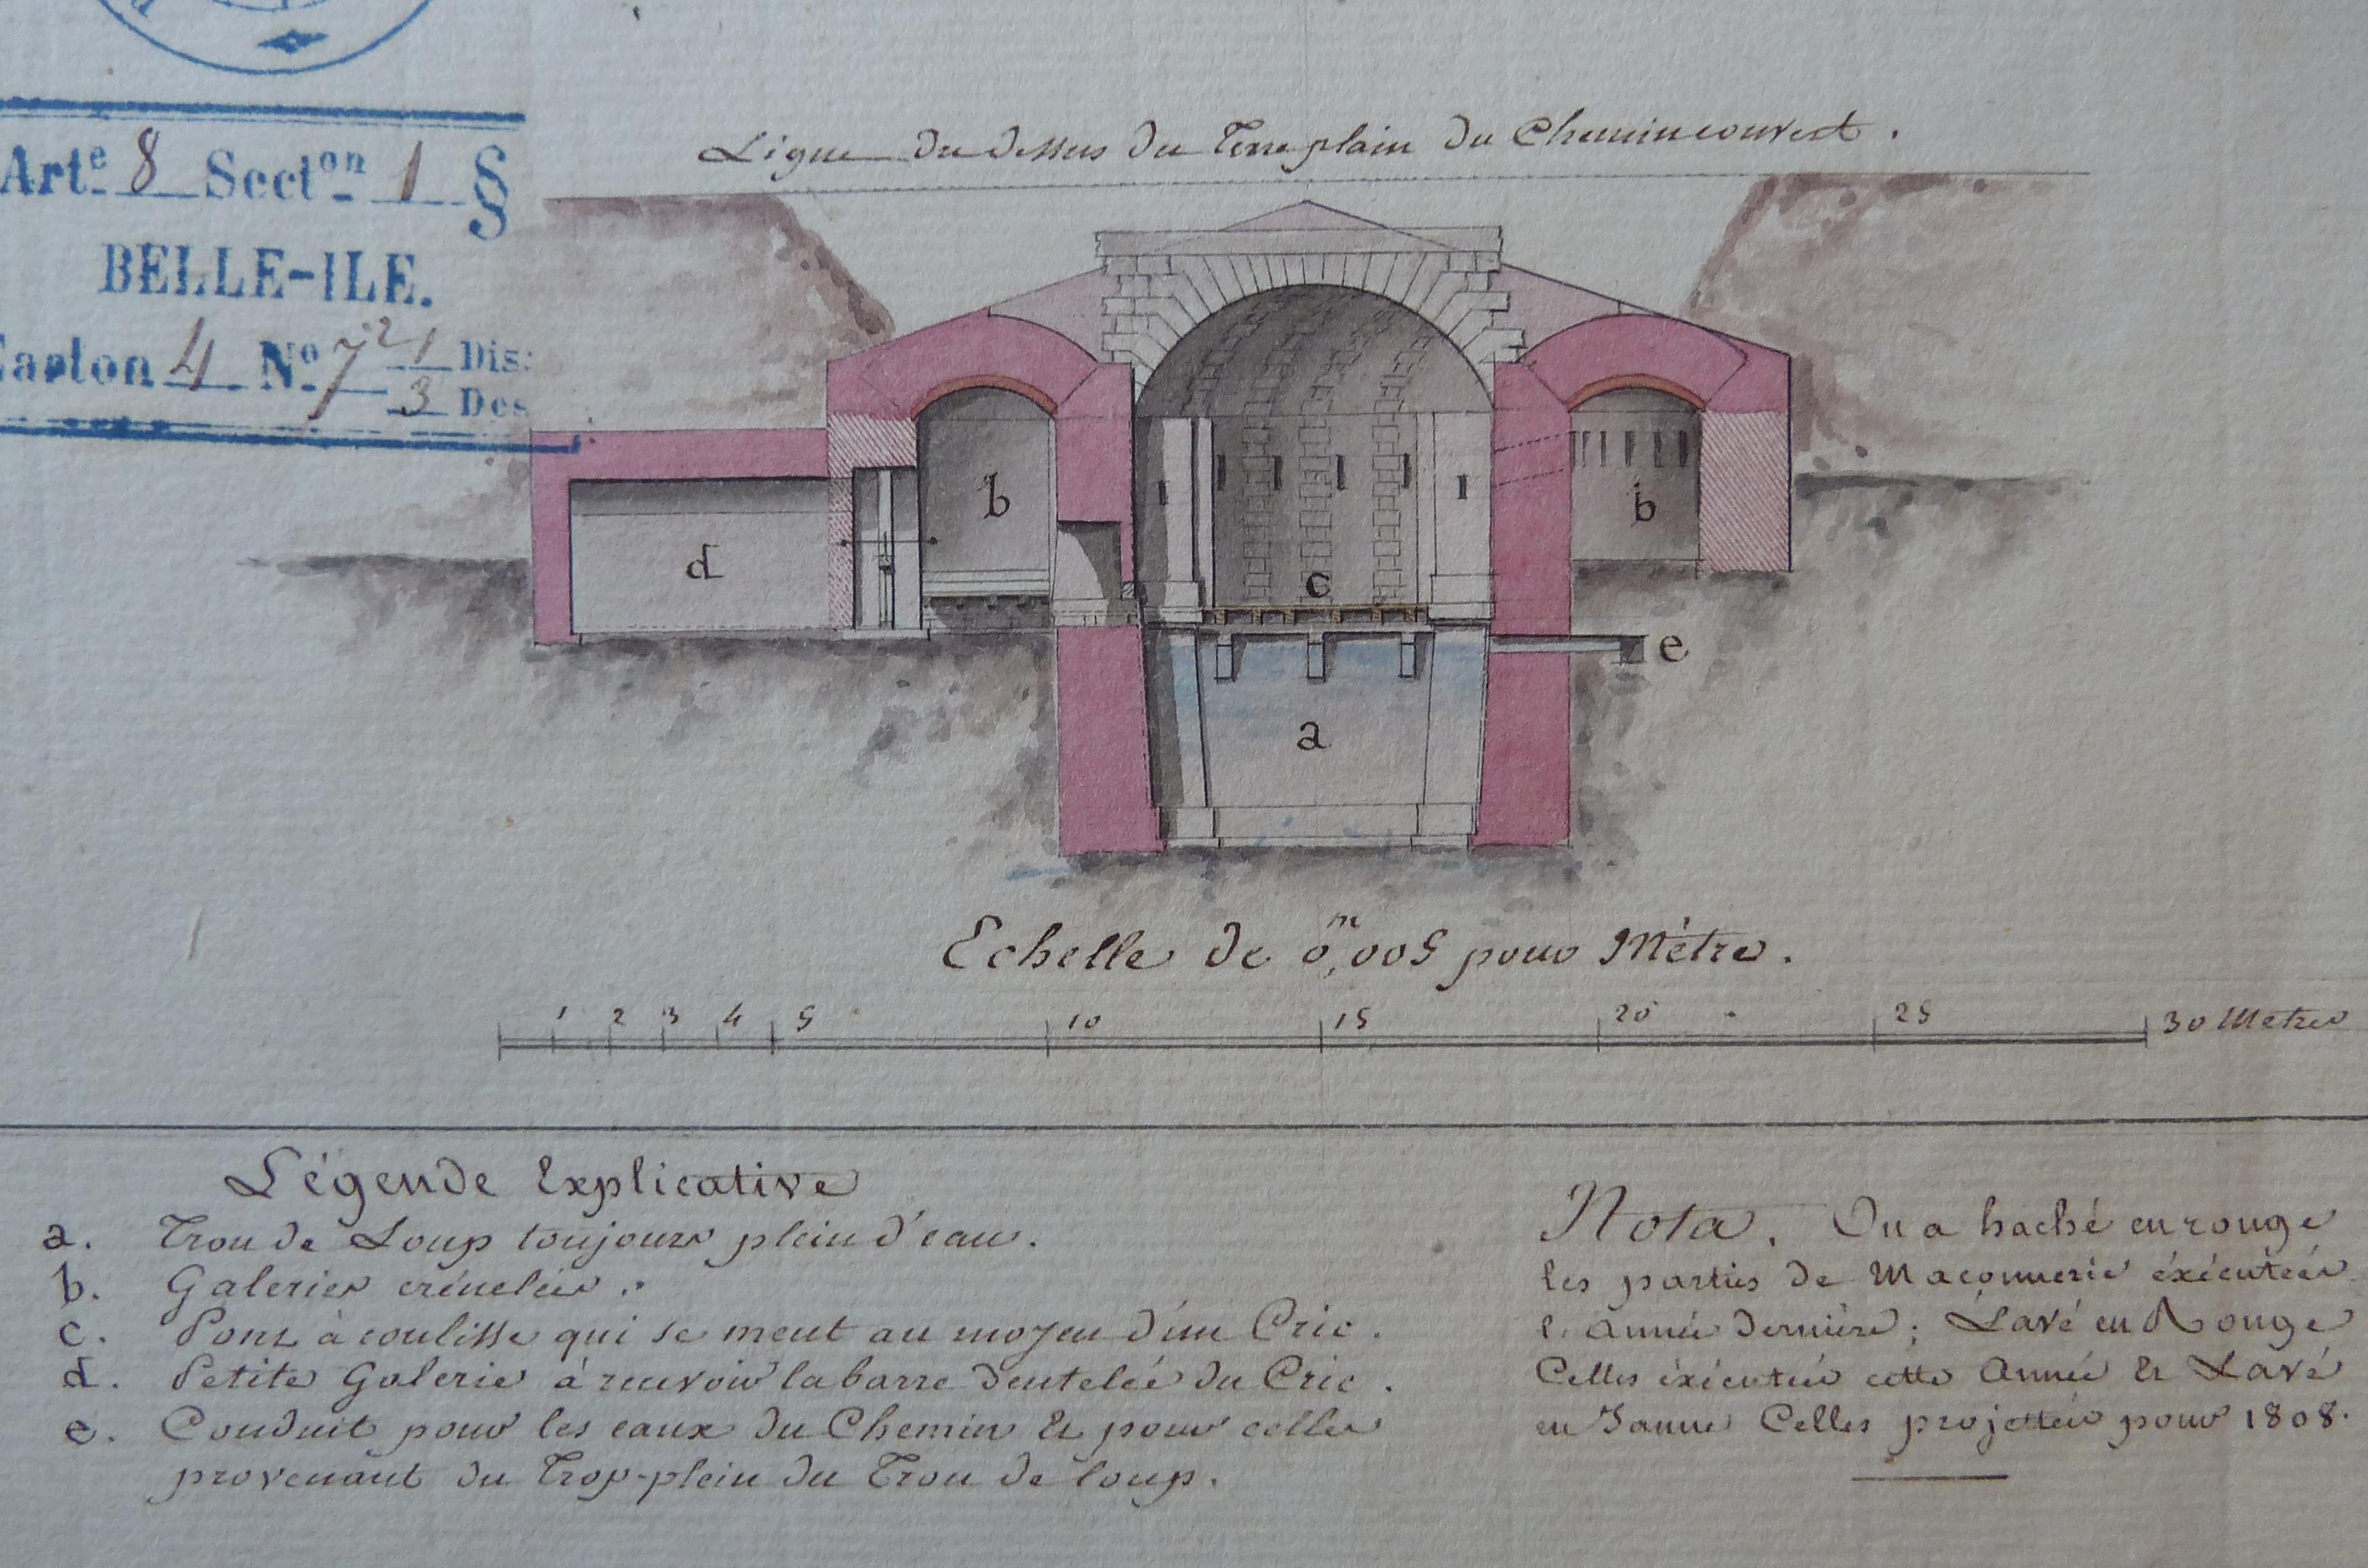 Arte. 8 Secton. 1 §
BELLE-ILE.
Carton 4 No. 7 2 1 Dis:
3 Des
Ligne du dessus du Terreplain du Chemin couvert.
b
b
d
c
e
a
Echelle de 0,m005 pour Mètre.
1 2 3 4 5 10 15 20 25 30 Metres
Légende Explicative
a. Trou de Loup toujours plein d'eau.
b. Galeries crénelées.
c. Pont à coulisse qui se meut au moyen d'un Cric.
d. Petite Galerie à recevoir la barre dentelée du Cric.
e. Conduit pour les eaux du Chemin Et pour celles
provenant du Trop-plein du Trou de loup.
Nota. On a haché en rouge
les parties de Maçonnerie éxécutées
l'Année dernière; Lavé en Rouge
Celles éxécutées cette Année Et Lavé
en Jaune Celles projettées pour 1808.